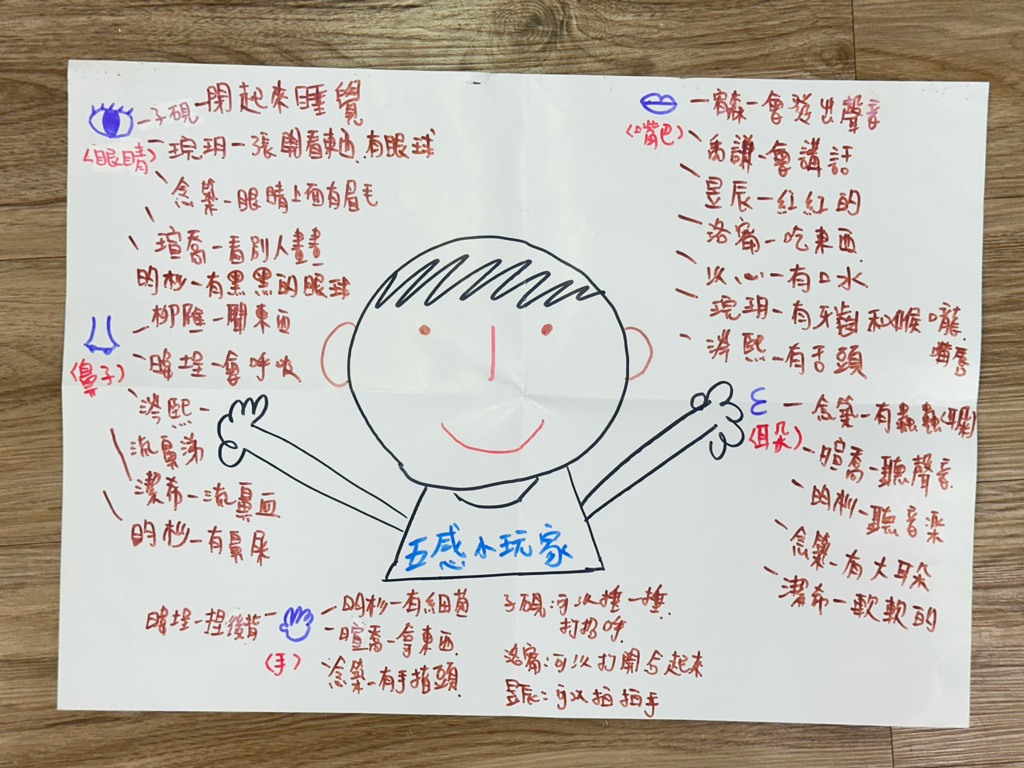 子硯-閉起來睡覺
(眼睛)
琬玥-張開看東西,有眼球
念築-眼睛上面有眉毛
瑄喬-看別人畫畫
昀杉-有黑黑的眼球
(鼻子)
柳雁-聞東西
暐埕-會呼吸
澪熙-
流鼻涕
潔希-流鼻血
昀杉-有鼻屎
(嘴巴)
宥森-會發出聲音
禹謙-會講話
昱辰-紅紅的
洛甯-吃東西
以心-有口水
琬玥-有牙齒和喉嚨
嘴唇
澪熙-有舌頭
(耳朵)
念築-有蟲蟲(耳朵)
瑄喬-聽聲音
昀杉-聽音樂
念築-有大耳朵
潔希-軟軟的
五感小玩家
(手)
暐埕-捏後背
昀杉-有細菌
瑄喬-拿東西
念築-有手指頭
子硯:可以捶一捶
打招呼
洛甯:可以打開与起來
昱辰:可以拍拍手